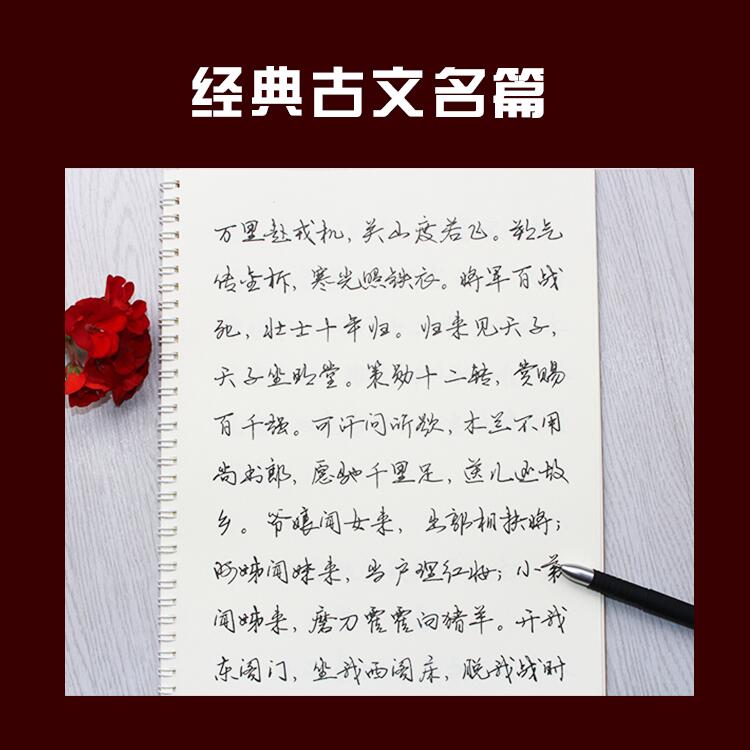 经典古文名篇
万里赴戎机，关山度若飞。朔气
传金柝，寒光照铁衣。将军百战
死，壮士十年归。归来见天子，
天子坐明堂。策勋十二转，赏赐
百千强。可汗问所欲，木兰不用
尚书郎，愿驰千里足，送儿还故
乡。爷娘闻女来，出郭相扶将；
阿姊闻妹来，当户理红妆；小弟
闻姊来，磨刀霍霍向猪羊。开我
东阁门，坐我西阁床，脱我战时